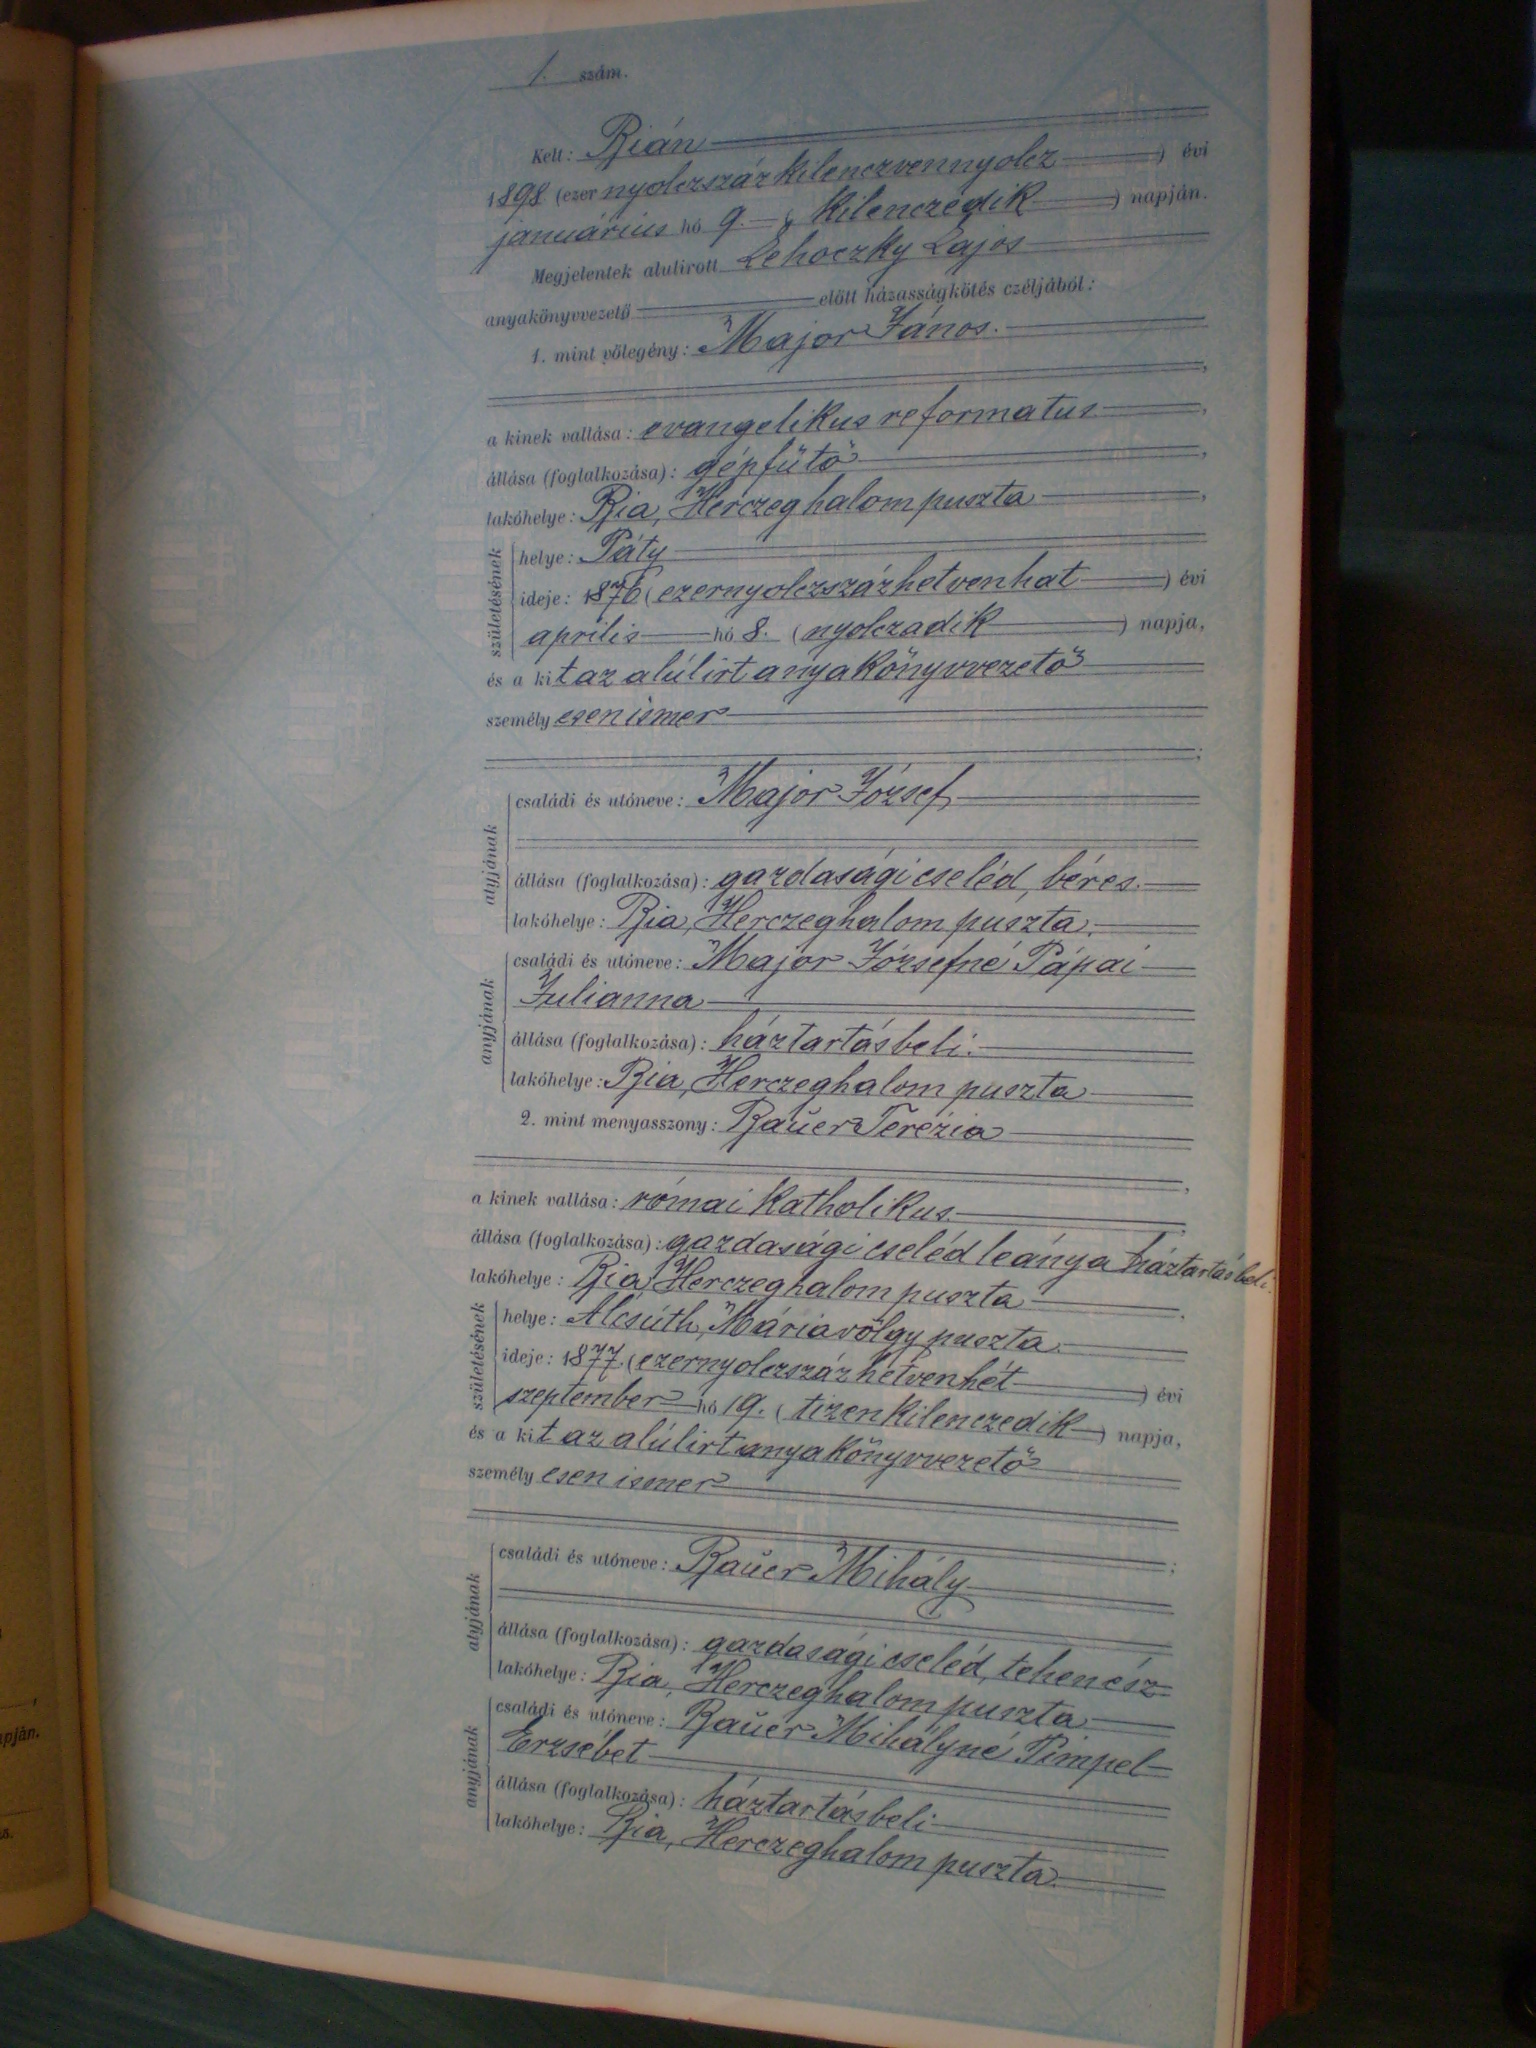 1. szám.
Kelt: Bián
1898 (ezer nyolczszáz kilenczvennyolcz) évi
januárius hó 9. ( kilenczedik ) napján.
Megjelentek alulirott Lehoczky Lajos
anyakönyvvezető előtt házasságkötés czéljából:
1. mint vőlegény: Major János.
a kinek vallása: evangelikus reformatus,
állása (foglalkozása): gépfűtő,
lakóhelye: Bia, Herczeghalom puszta,
születésének
helye: Páty
ideje: 1876 (ezernyolczszázhetvenhat) évi
aprilis hó 8. (nyolczadik) napja,
és a kit az alúlirt anyakönyvvezető
személyesen ismer
;
atyjának
családi és utóneve: Major József,
állása (foglalkozása): gazdasági cseléd, béres.
lakóhelye: Bia, Herczeghalom puszta.
anyjának
családi és utóneve: Major Józsefné Pápai
Julianna
állása (foglalkozása): háztartásbeli.
lakóhelye: Bia, Herczeghalom puszta
2. mint menyasszony: Bauer Terézia
,
a kinek vallása: római katholikus.
állása (foglalkozása): gazdasági cseléd leánya háztartásbeli.
lakóhelye: Bia, Herczeghalom puszta,
születésének
helye: Alcsúth, Máriavölgy puszta.
ideje: 1877. (ezernyolczszáz hetvenhét) évi
szeptember hó 19. (tizenkilenczedik) napja,
és a kit az alúlirt anyakönyvvezető
személyesen ismer
;
atyjának
családi és utóneve: Bauer Mihály
állása (foglalkozása): gazdasági cseléd, tehenész
lakóhelye: Bia, Herczeghalom puszta
anyjának
családi és utóneve: Bauer Mihályné Pimpel
Erzsébet
állása (foglalkozása): háztartásbeli
lakóhelye: Bia, Herczeghalom puszta.
apján.